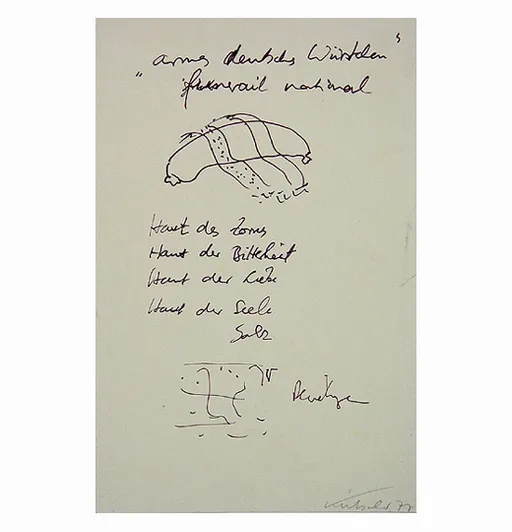 "armes deutsches Würstchen"
funerail national
Haut des Zorns
Haut der Bitterkeit
Haut der Liebe
Haut der Seele
Salz
77